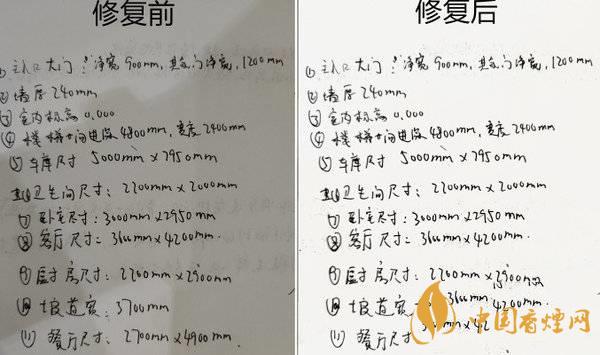 修复前
① 主入口大门:净宽900mm,其它门净宽,1200mm
② 墙厚240mm
③ 室内标高0.000
④ 楼梯间进深4800mm,宽度2400mm
⑤ 车库尺寸 5000mm×2950mm
⑥ 卫生间尺寸:2200mm×2000mm
⑦ 卧室尺寸:3000mm×2950mm
⑧ 客厅尺寸:3600mm×4200mm.
⑨ 厨房尺寸:2200mm×2900mm
⑩ 坡道宽:3700mm
⑪ 餐厅尺寸:2700mm×4900mm.
修复后
① 主入口大门:净宽900mm,其它门净宽,1200mm
② 墙厚240mm
③ 室内标高0.000
④ 楼梯间进深4800mm,宽度2400mm
⑤ 车库尺寸 5000mm×2950mm
⑥ 卫生间尺寸:2200mm×2000mm
⑦ 卧室尺寸:3000mm×2950mm
⑧ 客厅尺寸:3600mm×4200mm.
⑨ 厨房尺寸:2200mm×2900mm
⑩ 坡道宽 3600mm 4200mm
⑪ 餐厅尺寸
中国香烟网